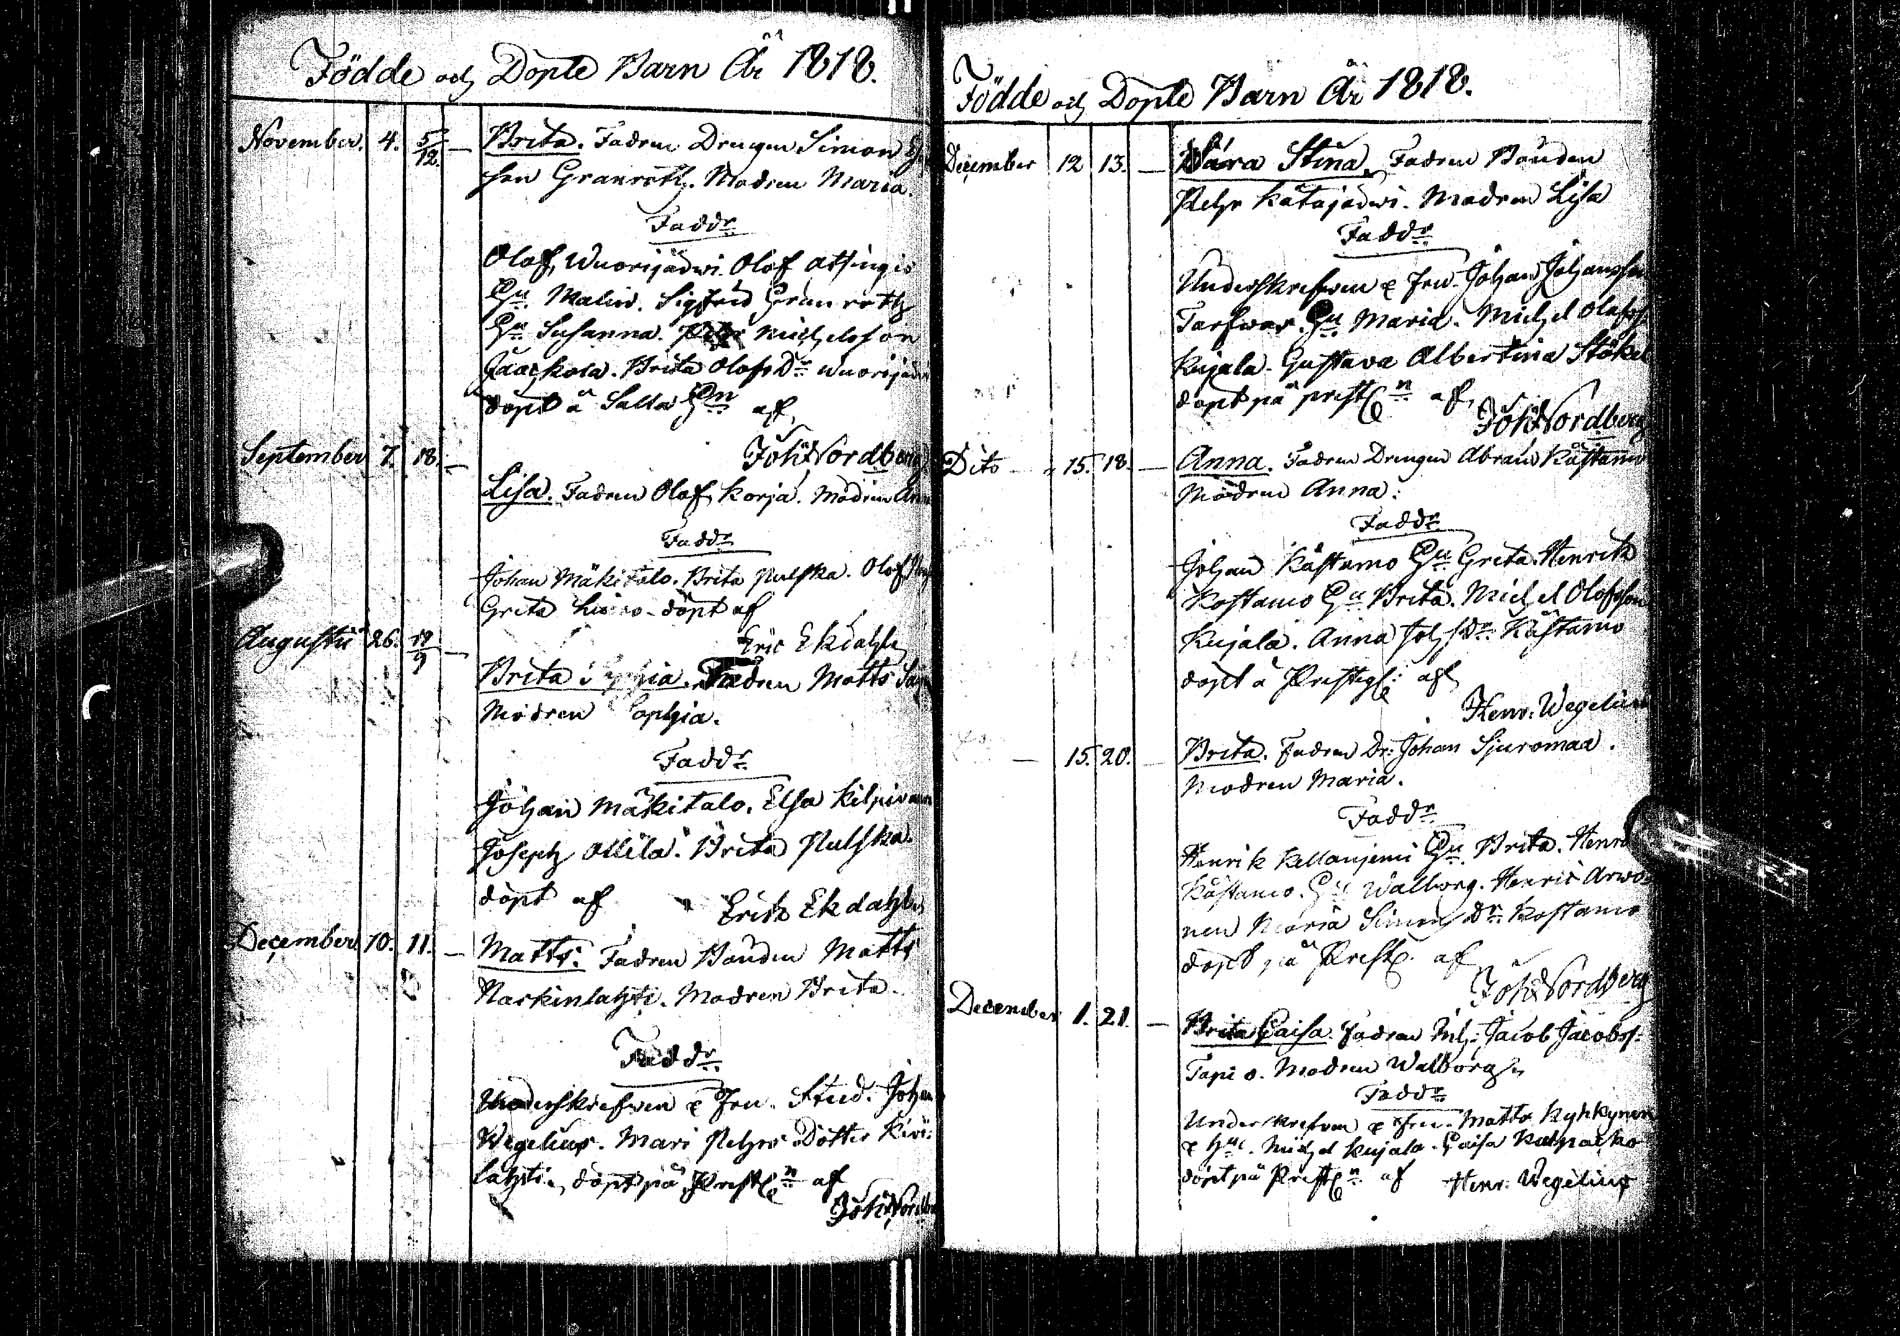 Födde och Döpte Barn År 1818.
November. 4. 5/12. — Brita. Fadren Drengen Simon
son Granroth. Modren Maria.
Fadd:r
Olof Wuorijärwi. Olof
Hu Malin. Sigfrid Granroth
Hu Susanna. Michelsson
Jaakola. Brita Olofs Dr Wuorijärwi
döpt å Salla af
Joh: Nordberg
September 7. 18. —
Lisa. Fadren Olof Korja. Modren Anna
Fadd:r
Johan Mäkitalo. Brita Pulska. Olof
Greta döpt af
Eric Ekdahl
Augustii 26. 19/9 —
Brita Sophia. Fadren Matts
Modren Sophia.
Fadd:r
Johan Mäkitalo. Elsa
Joseph Ollila. Brita Pulska.
döpt af Erik Ekdahl
December 10. 11. — Matts. Fadren Bonden Matts
Narkinlahti. Modren Brita.
Fadd:r
Underskrefven & Fru. Stud. Johan
Wegelius. Mari Pehrs Dotter Kivi-
lahti, döpt på Prestg:n af
Joh: Nordberg
Födde och Döpte Barn År 1818.
December 12 13. — Sara Stina. Fadren Bonden
Pehr Katajärwi. Modren Lisa
Fadd:r
Underskrefven & Fru. Johan Johansson
Tarfwas. Hu Maria. Michel Olofss
Kujala. Gustava Albertina Stökel
döpt på prestg:n af
Joh: Nordberg
Dito — 15. 18. — Anna. Fadren Drengen Abram Kåstamo
Modren Anna.
Fadd:r
Johan Kåstamo Hu Greta. Henrik
Kostamo Hu Brita. Michel Olofsson
Kujala. Anna Joh:s Dr Kåstamo
döpt å Prestg: af
Henr. Wegelius
— 15. 20. — Brita. Fadren Dr: Johan Sjuromaa.
Modren Maria.
Fadd:r
Henrik Kellanjemi Hu Brita. Henrik
Kåstamo. Hu Walborg. Henric Arwo-
nen Maria Simons Dr Kostamo
döpt på Prestg. af
Joh: Nordberg
December 1. 21. — Brita Caisa. Fadren Inh: Jacob Jacobss:
Tapio. Modren Walborg.
Fadd:r
Underskrefven & Fru. Matts Kyhkynen
& Hu. Michel Kujala. Caisa
döpt på Prestg:n af Henr: Wegelius